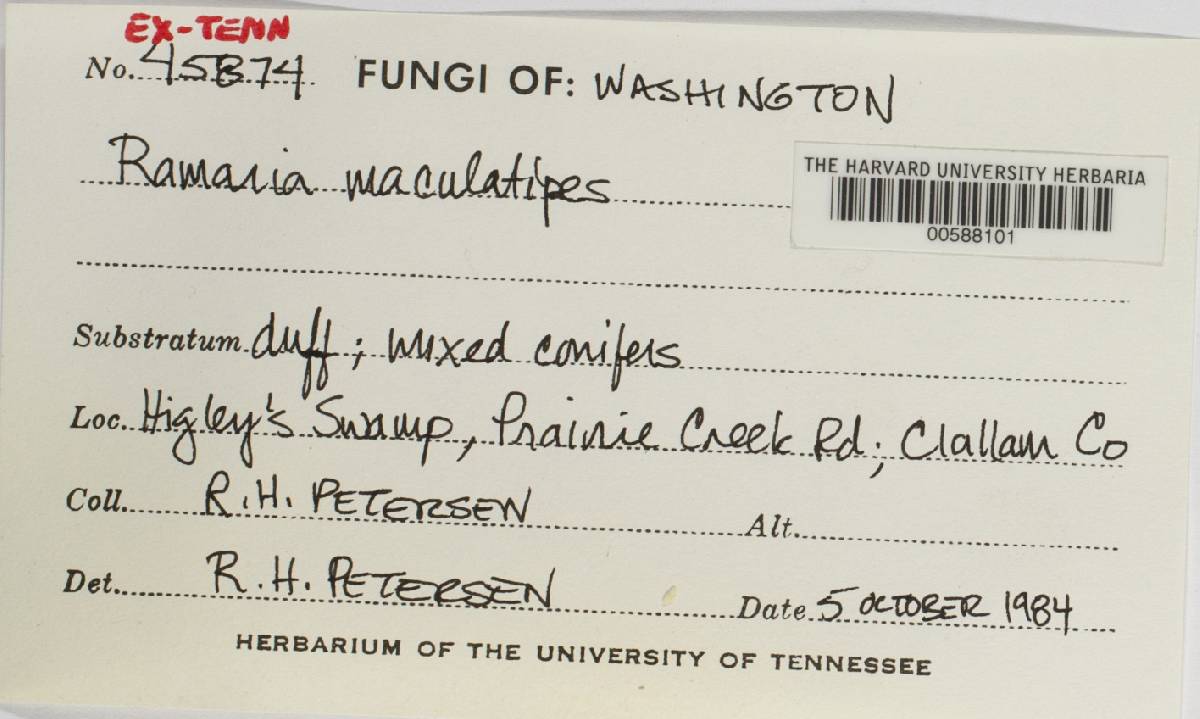 EX-TENN
No. 45874 FUNGI OF: WASHINGTON
Ramaria maculatipes
THE HARVARD UNIVERSITY HERBARIA
00588101
Substratum duff; mixed conifers
Loc. Higley's Swamp, Prairie Creek Rd; Clallam Co
Coll. R.H. PETERSEN Alt.
Det. R.H. PETERSEN Date 5 OCTOBER 1984
HERBARIUM OF THE UNIVERSITY OF TENNESSEE